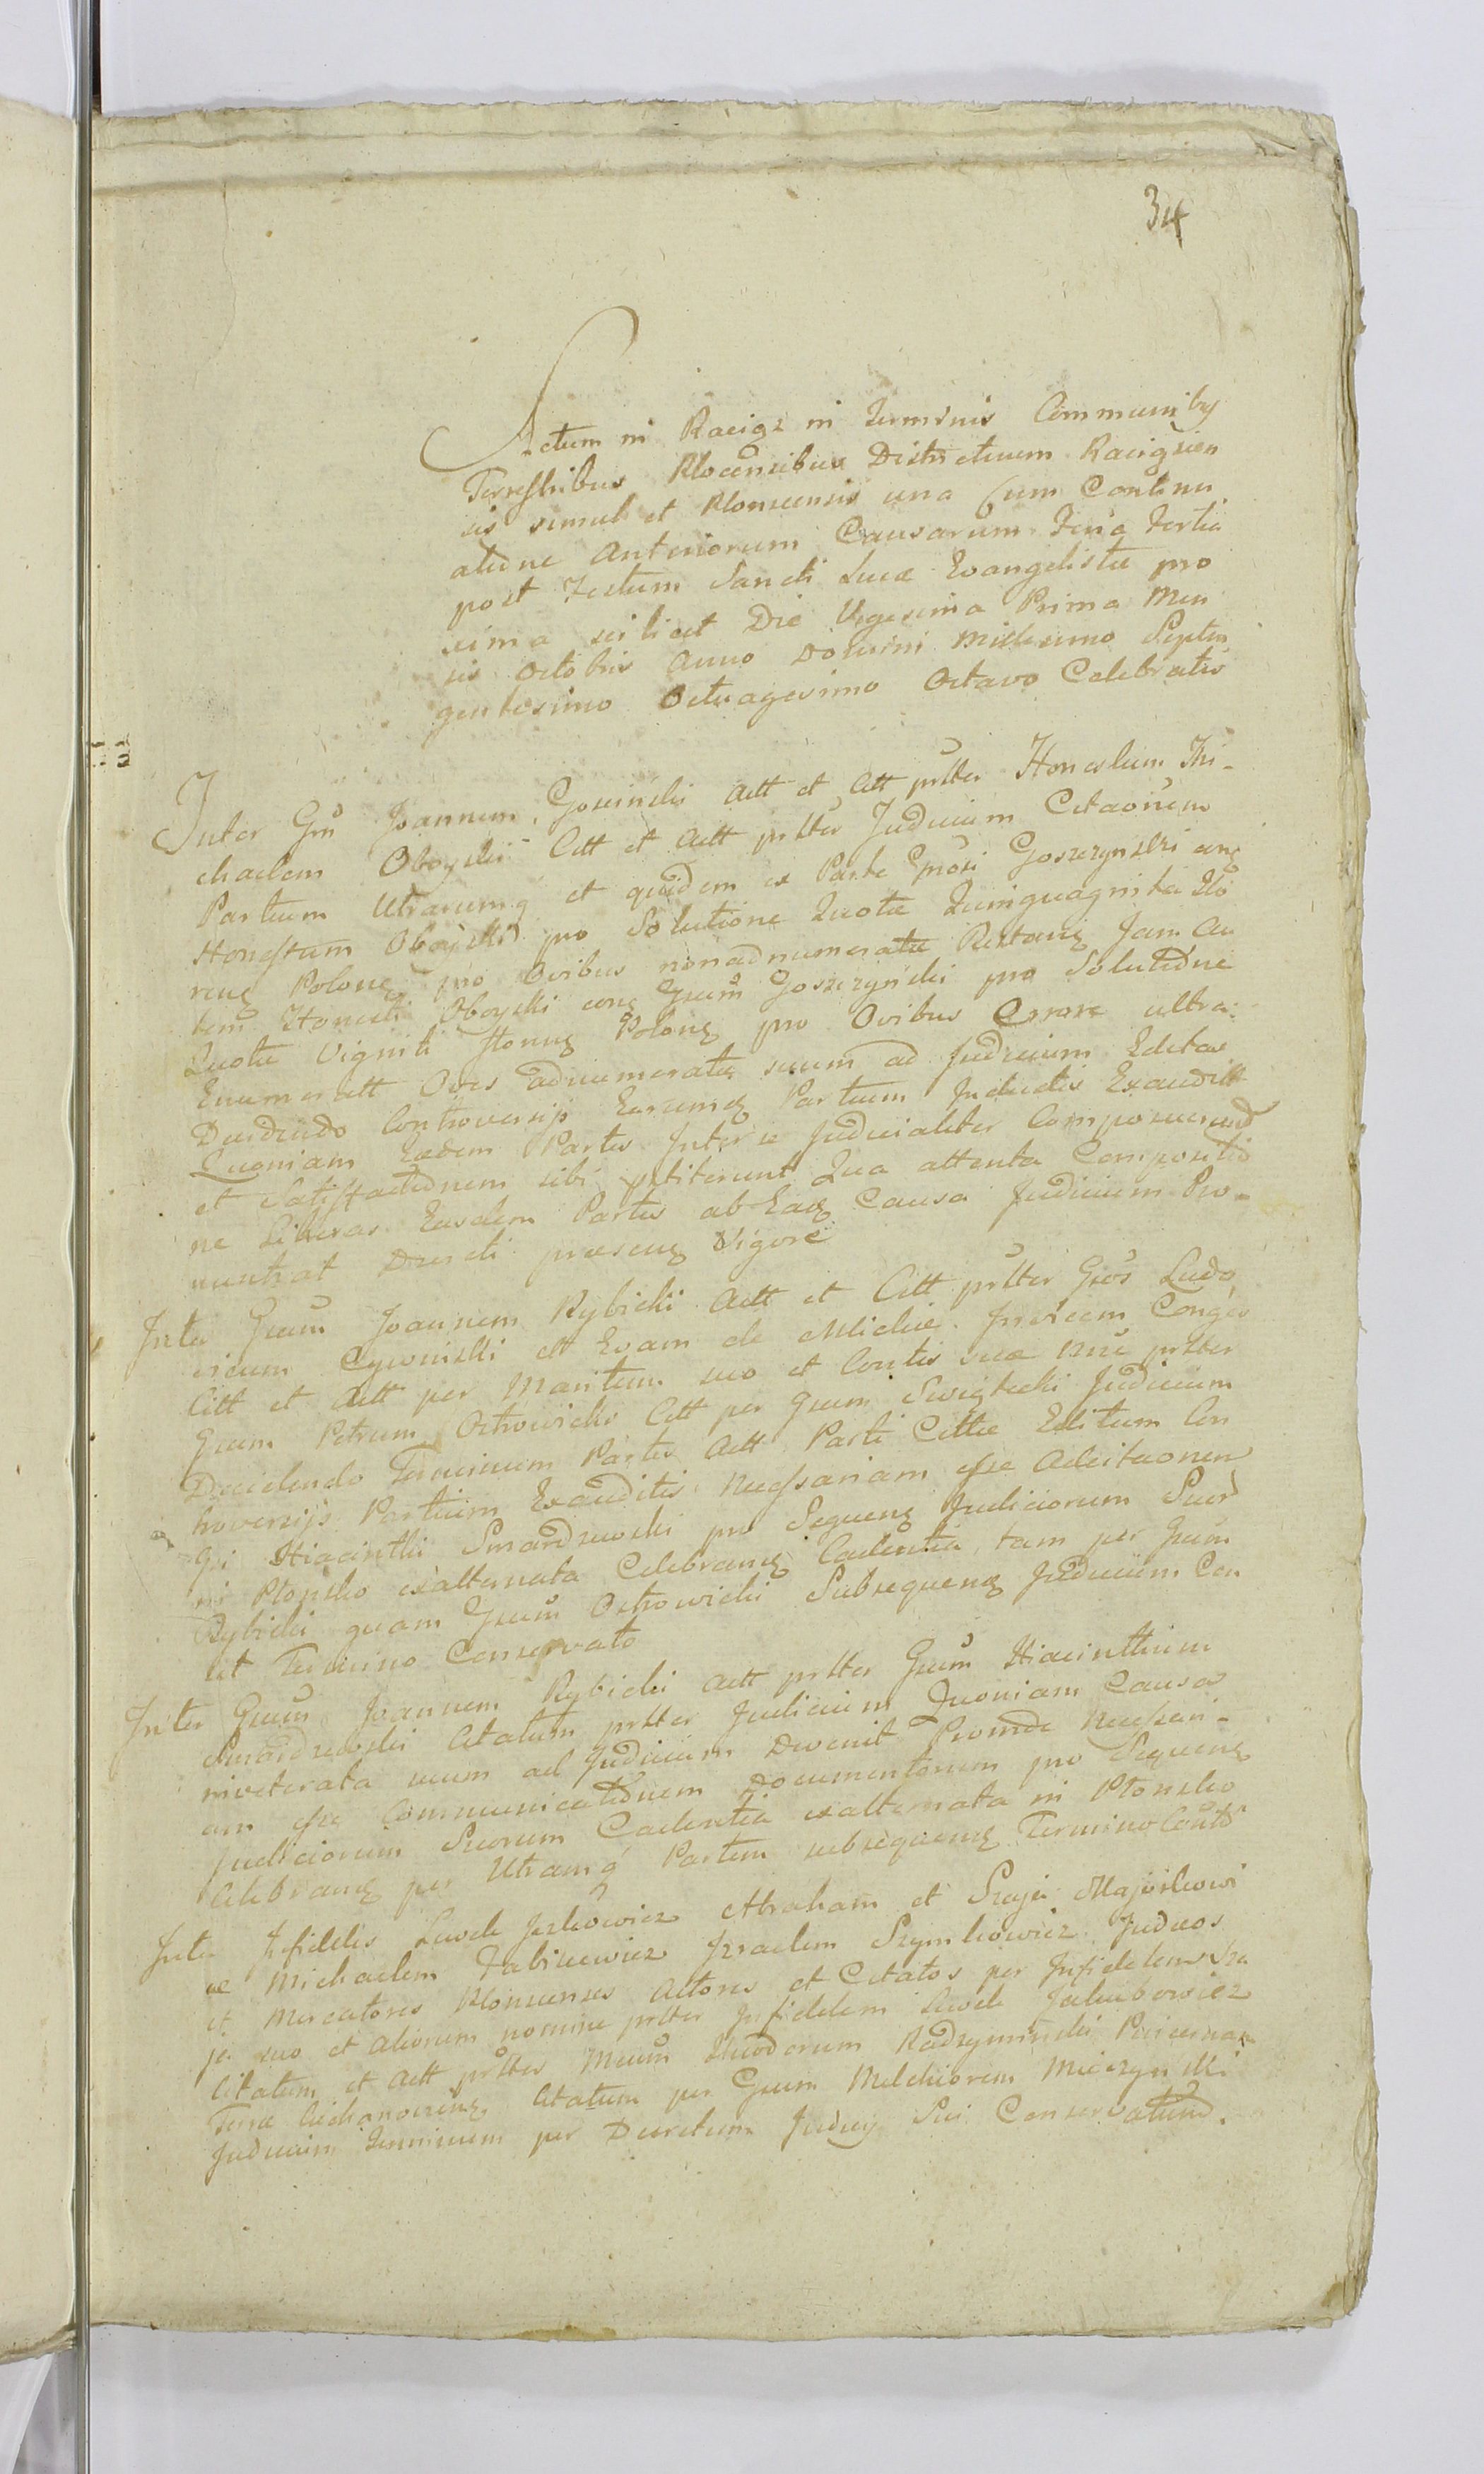 34
Actum in Raciąż in Terminis Communibq
Terrestribus Plocensibus Districtuum Raciązien
sis simul et Plonscensis una Cum Continu
atione Anteriorum Causarum Feria Tertia
post Festum Sancti Lucæ Evangelistæ pro
xima scilicet Die Vigesima Prima Men
sis Octobris Anno Domini Millesimo Septin
gentesimo Octuagesimo Octavo Celebratis
Inter Gm Joannem Goscinski Actt et Citt prtter Honestum Mi-
chaelem Oboyski Citt et Actt prtter Judicium Citaonum
Partium Utrarumq et quidem ex Parte Gnosi Goszczynski conq
Honestum Oboyski pro Solutione Quotæ Quinquaginta Flo
renq Polonq pro Ovibus non adnumeratæ Restanq Jam Au
tem Honesti Oboyski conq Gsum Goszczynski pro Solutione
Quotæ Viginti florenq Polonq pro Ovibus Errore ultra
Enumeratt Oves adnumeratæ suum ad Judicium Editas
Decidendo Controversijs Earumq Partium Inductis Exauditt
Quoniam Eædem Partes Inter se Judicialiter Composuerunt
et Satisfactionem sibi petiterunt Qua attenta Compositio
ne Liberas Easdem Partes ab Eaq Causa Judicium Pro-
nuntiat Decreti præsenq Vigore
Inter Gsum Joannem Rybicki Actt et Citt prtter Gsos Ludo
vicum Cywinski et Evam de Mlickie Invicem Conges
Citt et Actt per Maritum suo et Contis suæ nne prtter
Gsum Petrum Ostrowicki Citt per Gsum Swięcki Judicium
Decidendo Terminum Partes Actt Parti Cittæ Editum Con
troversijs Partium Exauditis necessariam esse Adcitaonem
Gsi Hiacinthi Smardzewski pro Sequenq Judiciorum Suor
in Plonsko exalternata Celebranq Cadentia, tam per Gsum
Rybicki quam Gsum Ostrowicki Subsequenq Judicium Cen
set Termino Conservato
Inter Gsum Joannem Rybicki Actt prtter Gsum Hiacinthum
Smardzewski Citatum prtter Judicium Quoniam Causa
inveterata suum ad Judicium Devenit Proinde Necessari-
am esse Communicationem Documentorum pro Sequenq
Judiciorum Suorum Cadentia exalternata in Plonsko
Celebranq per Utramq Partem subsequenq Termino
Inter Infideles Lewek Jezkowicz Abraham et Szaja Majorkowi
cze Michaelem Fabiszewicz Izraelem Szymkowicz Judæos
et Mercatores Plonscenses Actores et Citatos per Infidelem Sza
ja suo et aliorum nomine prtter Infidelem Lewek Jakubowicz
Citatum et Actt prtter Mcum Theodorum Radzyminski Pincernam
Terræ Ciechanoviensq Citatum per Gsum Melchiorem Mieczynski
Judicium Terminum per Decretum Judicij Sui Conservatum.